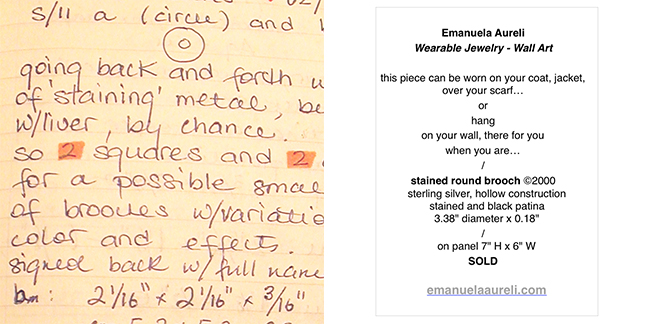 s/11 a (circle) and
going back and forth
of 'staining' metal, be
w/liver, by chance.
so 2 squares and 2
for a possible smal
of brooches w/variatio
color and effects.
signed back w/ full name
bm: 2 1/16" x 2 1/16" x 3/16"
Emanuela Aureli
Wearable Jewelry - Wall Art
this piece can be worn on your coat, jacket,
over your scarf…
or
hang
on your wall, there for you
when you are…
/
stained round brooch ©2000
sterling silver, hollow construction
stained and black patina
3.38" diameter x 0.18"
/
on panel 7" H x 6" W
SOLD
emanuelaaureli.com